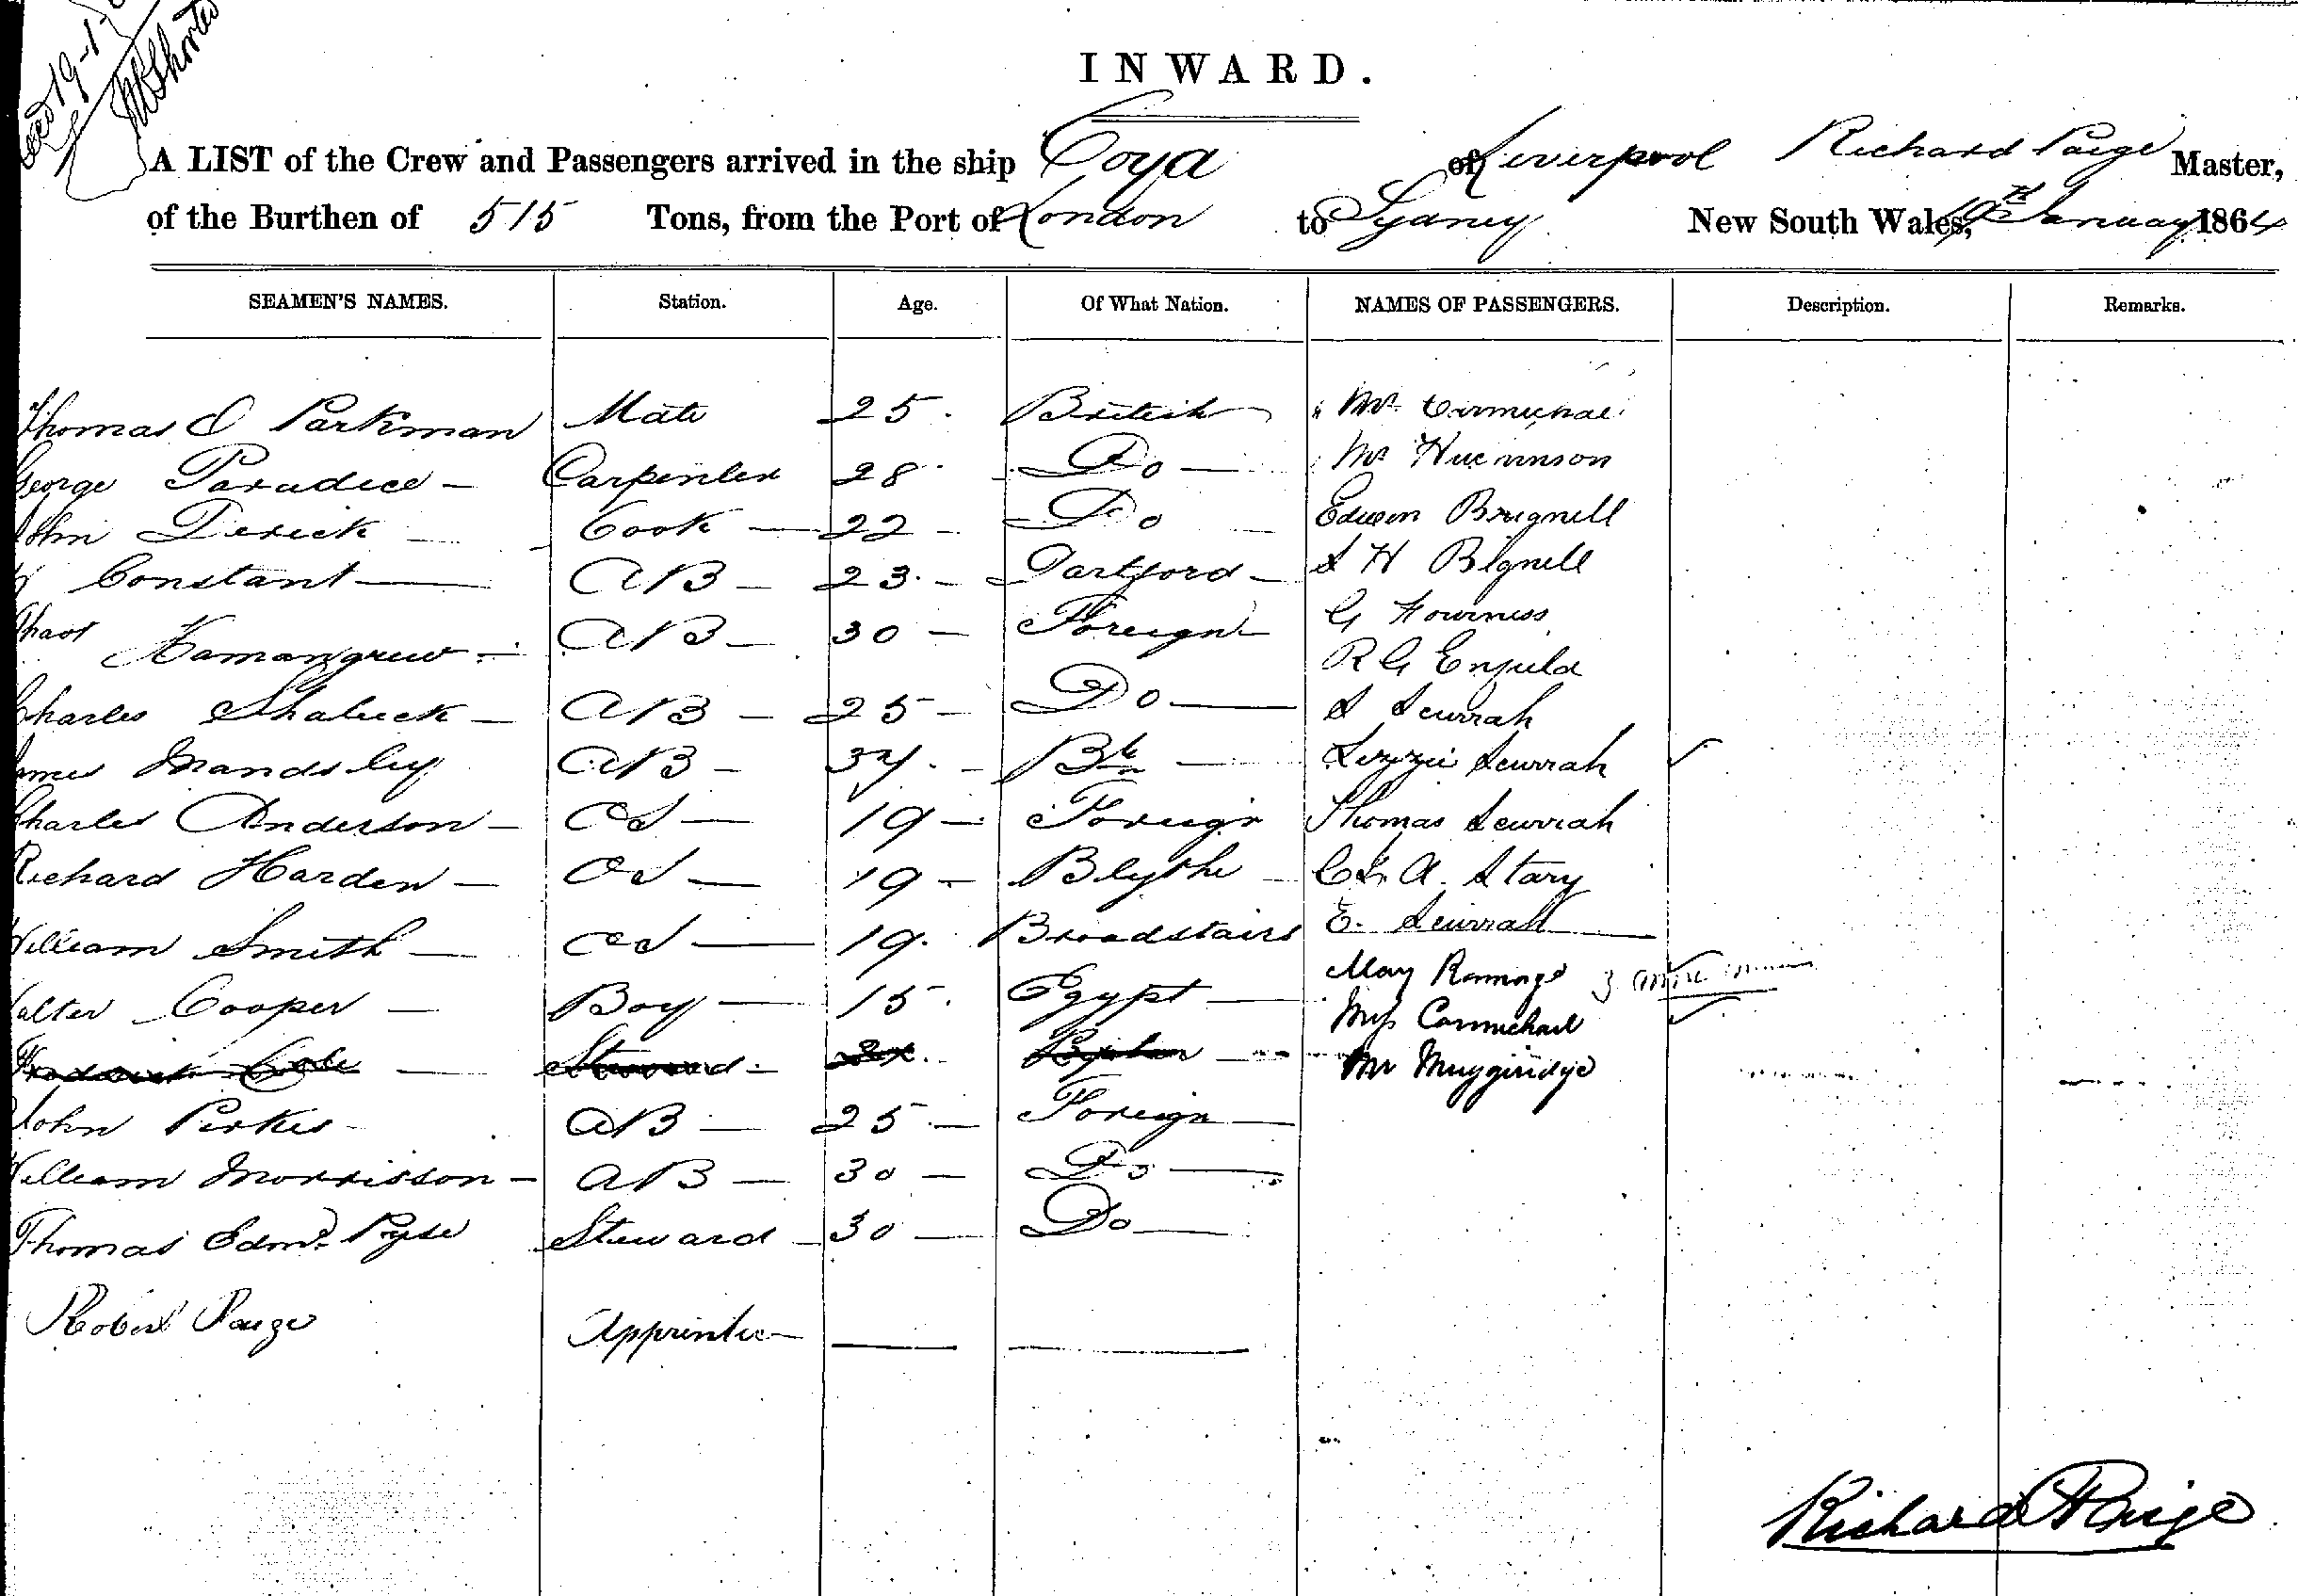 INWARD.
A LIST of the Crew and Passengers arrived in the ship Coya of Liverpool Richard Paige Master,
of the Burthen of 515 Tons, from the Port of London to Sydney New South Wales, 19th January 1864
SEAMEN'S NAMES. Station. Age. Of What Nation. NAMES OF PASSENGERS. Description. Remarks.
Thomas O Parkman Mate 25. British Mr
George Paradice Carpenter 28 Do Mr
John Derick Cook 22 Do Edwin Brignell
Constant AB 23 Dartford S H Bignell
AB 30 Foreign G Fowniss
Charles AB 25 Do R G Enfield
James Mandsley AB Bh S Scurrah
Charles Anderson OS 19 Foreign Lizzie Scurrah
Richard Harden OS 19 Blythe Thomas Scurrah
William Smith OS 19. Broadstairs A. Stary
Walter Cooper Boy 15. Egypt E. Scurrah
Steward May
John Perkes AB 25 Foreign Miss Carmichael
William Morrisson AB 30 Do Mr Muggeridge
Thomas Edmd. Pyse Steward 30 Do
Robert Paige Apprentice
Richard Paige